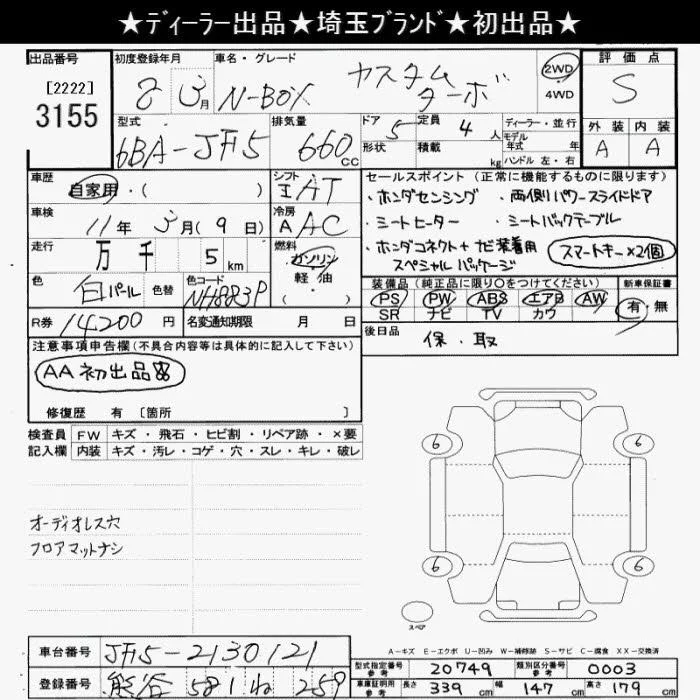 ★ディーラー出品★埼玉ブランド★初出品★
出品番号
[2222]
3155
初度登録年月
8 3月
車名・グレード
N-BOX カスタム ターボ
2WD
4WD
評価点
S
外装 内装
A A
型式
6BA-JF5
排気量
660 cc
ドア 5
形状
定員 4 人
積載 kg
ディーラー・並行
モデル年式 年式
ハンドル 左・右
車歴
自家用・( )
シフト
AT
車検
11年 3月(9日)
冷房
AAC
走行
万 千 5 km
燃料
ガソリン
軽油
( )
色
白パール
色替
色コード
NH883P
R券 14200 円
名変通知期限 月 日
セールスポイント (正常に機能するものに限ります)
・ホンダセンシング ・両側パワースライドドア
・シートヒーター ・シートバックテーブル
・ホンダコネクト+ナビ装着用
スペシャルパッケージ
スマートキー×2個
装備品(純正品に限り○をつけてください)
新車保証書
PS PW ABS エアB AW
SR ナビ TV カワ
有・無
後日品
保・取
注意事項申告欄(不具合内容等は具体的に記入して下さい)
AA初出品
修復歴 有 [箇所 ]
検査員 FW キズ・飛石・ヒビ割・リペア跡・×要
記入欄 内装 キズ・汚レ・コゲ・穴・スレ・キレ・破レ
オーディオレス穴
フロアマットナシ
6 6
6 6
スペア
A－キズ E－エクボ U－凹み W－補修跡 S－サビ C－腐食 XX－交換済
車台番号 JF5-2130121
登録番号 熊谷 581 ね 259
型式指定番号 参考 20749 類別区分番号 参考 0003
車庫証明用 参考 長さ 339 cm 幅 147 cm 高さ 179 cm